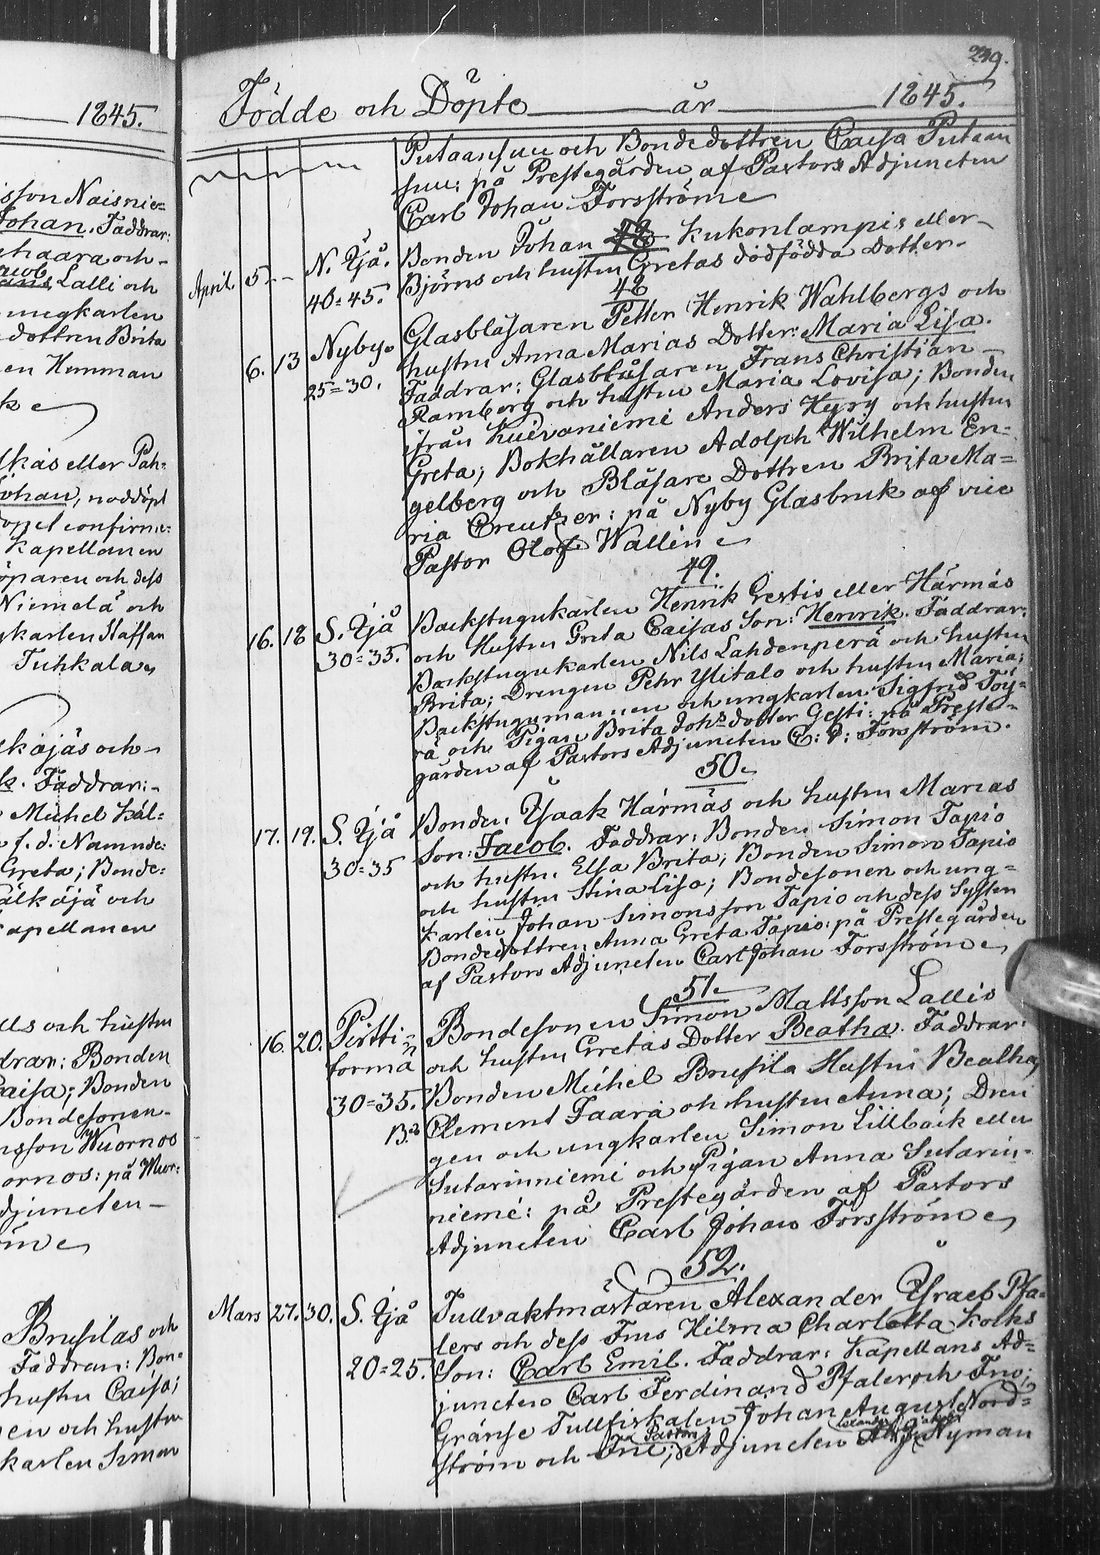 1845.
sson Naisnie=
Johan. Faddrar:
haara och
Jacob Lalli och
ungkarlen
dottren Brita
en Hemman
lkas eller Pah=
Johan, noddöpt
confirme=
Kapellanen
öparen och dess
Niemelä och
gkarlen Staffan
Tuhkala
kojäs och
k. Faddrar:
Michel Käl=
f. d. Namnde=
Greta; Bonde=
älkäjä och
Kapellanen
lls och hustru
drar: Bonden
Caisa; Bonden
Bondesonen
nsson Wuornos
ornos: på Wuor=
djuncten
Brusilas och
Faddrar: Bon=
hustru Caisa;
en och hustru
karlen Simon
249.
Födde och Döpte år 1845.
Putaansuu och Bondedottren Caisa Putaan
suu: på Prestegården af Pastors Adjuncten
Carl Johan Forsström
April 5. N. Yjå. Bonden Johan 48 Kukonlampis eller
40=45. Björns och hustru Gretas dödfödda Dotter.
48
6. 13 Nyby Glasblåsaren Petter Henrik Wahlbergs och
25=30. hustru Anna Marias Dotter: Maria Lisa.
Faddrar: Glasblåsaren Frans Christian
Ramberg och hustru Maria Lovisa; Bonden
ifrån Kuivaniemi Anders Hyry och hustru
Greta; Bokhållaren Adolph Wilhelm En=
gelberg och Blåsare Dottren Brita Ma=
ria Creutzer: på Nyby Glasbruk af vice
Pastor Olof Wallin
49.
16. 18 S. Yjå Backstugukarlen Henrik Gestis eller Härmäs
30=35. och Hustru Greta Caisas Son: Henrik. Faddrar:
Backstugukarlen Nils Lahdenperä och hustru
Brita; Drengen Pehr Ylitalo och hustru Maria;
Backstugumannen och ungkarlen Sigfrid Töy=
rä och Pigan Brita Johsdotter Gesti: på Preste=
gården af Pastors Adjuncten C: J: Forsström.
50.
17. 19. S. Yjå Bonden Ysaak Härmäs och hustru Marias
30=35 Son: Jacob. Faddrar: Bonden Simon Tapio
och hustru Elsa Brita; Bonden Simon Tapio
och hustru Stina Lisa; Bondesonen och ung=
karlen Johan Simonsson Tapio och dess Syster
Bondedottren Anna Greta Tapio: på Prestegården
af Pastors Adjuncten Carl Johan Forsström
51.
16. 20. Pirtti= Bondesonen Simon Mattsson Lallis
formä och hustru Gretas Dotter Beatha. Faddrar:
30=35. Bonden Michel Brusila Hustru Beatha,
Clement Taara och hustru Anna; Dren
gen och ungkarlen Simon Lillbäck eller
Sutarinniemi och Pigan Anna Sutarin=
niemi: på Prestegården af Pastors
Adjuncten Carl Johan Forsström
52.
Mars 27. 30. S. Yjå Tullvaktmästaren Alexander Ysraes Pfa=
lers och dess Frus Hilma Charlotta Kolks
20=25. Son: Carl Emil. Faddrar: Kapellans Ad=
juncten Carl Ferdinand Pfaler och Fru;
Gränse Tullfiskalen Johan August Nord=
ström och Fru; Pastors Adjuncten Nyman